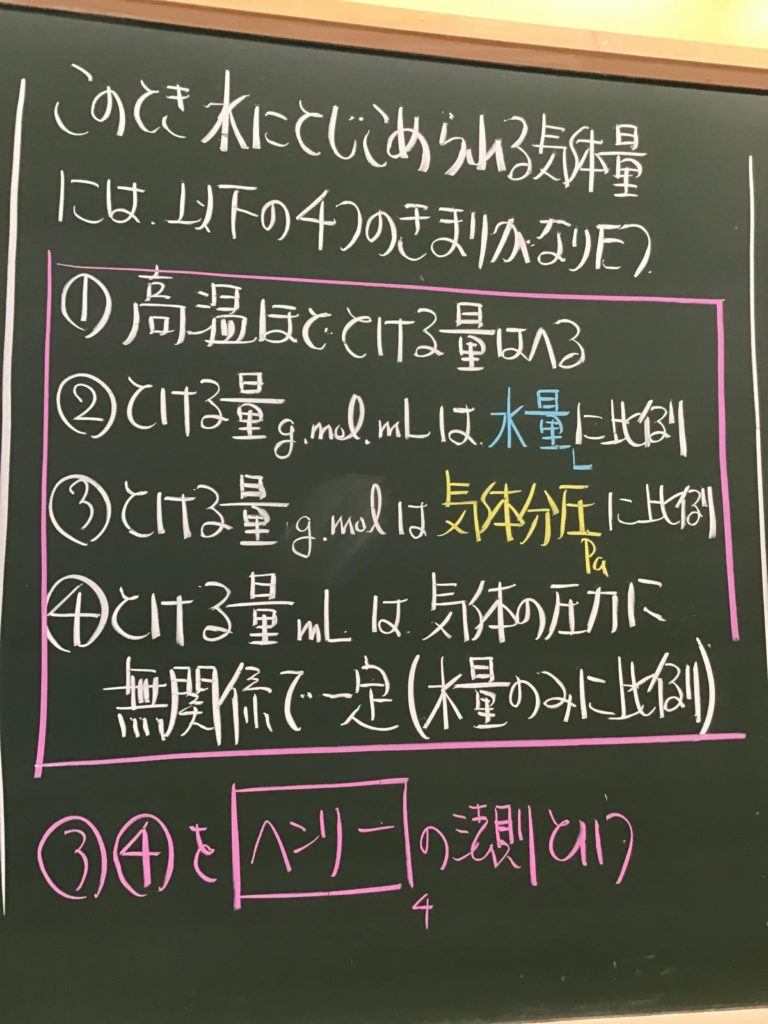 このとき水にとじこめられる気体量
には、以下の4つのきまりがなりたつ
①高温ほどとける量はへる
②とける量g.mol.mLは水量Lに比例
③とける量g.molは気体分圧Paに比例
④とける量mLは気体の圧力に
無関係で一定(水量のみに比例)
③④をヘンリーの法則という
4